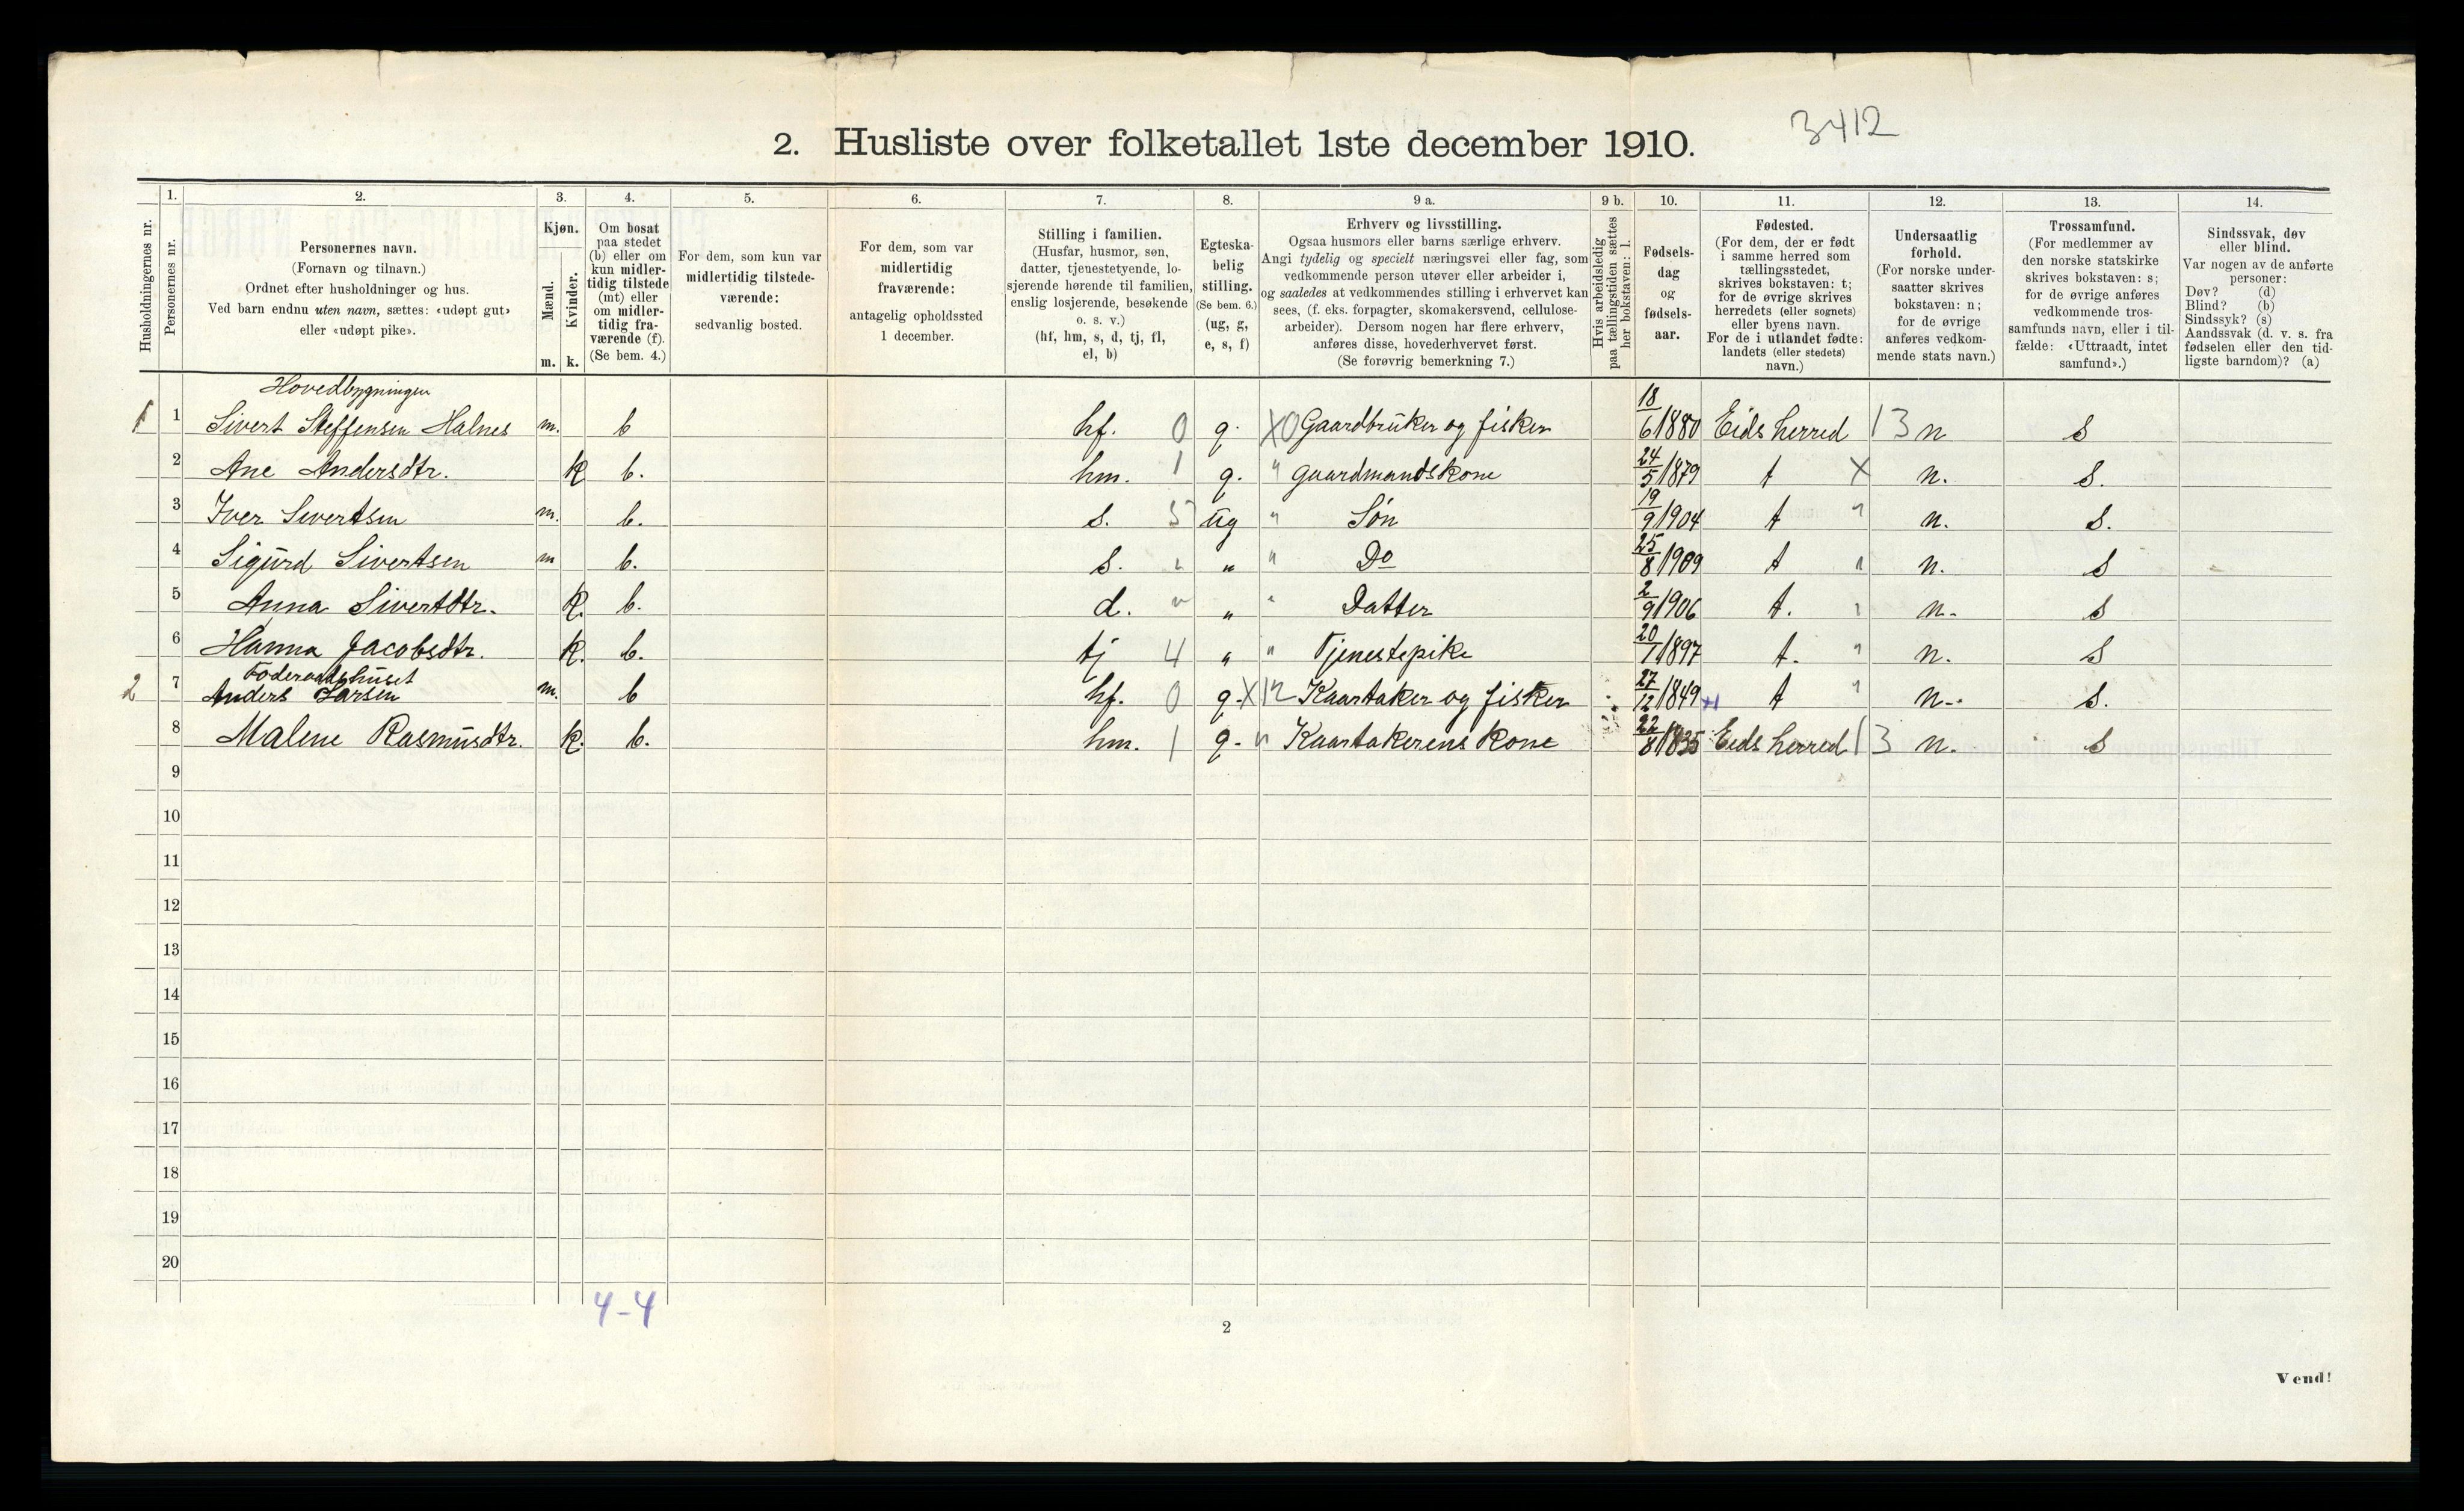 3412
2. Husliste over folketallet 1ste december 1910.
Husholdningernes nr.
1.
Personernes nr.
2.
Personernes navn.
(Fornavn og tilnavn.)
Ordnet efter husholdninger og hus.
Ved barn endnu uten navn, sættes: «udøpt gut»
eller «udøpt pike».
3.
Kjøn.
Mænd.
Kvinder.
m. k.
4.
Om bosat
paa stedet
(b) eller om
kun midler-
tidig tilstede
(mt) eller
om midler-
tidig fra-
værende (f).
(Se bem. 4.)
5.
For dem, som kun var
midlertidig tilstede-
værende:
sedvanlig bosted.
6.
For dem, som var
midlertidig
fraværende:
antagelig opholdssted
1 december.
7.
Stilling i familien.
(Husfar, husmor, søn,
datter, tjenestetyende, lo-
sjerende hørende til familien,
enslig losjerende, besøkende
o. s. v.)
(hf, hm, s, d, tj, fl,
el, b)
8.
Egteska-
belig
stilling.
(Se bem. 6.)
(ug, g,
e, s, f)
9 a.
Erhverv og livsstilling.
Ogsaa husmors eller barns særlige erhverv.
Angi tydelig og specielt næringsvei eller fag, som
vedkommende person utøver eller arbeider i,
og saaledes at vedkommendes stilling i erhvervet kan
sees, (f. eks. forpagter, skomakersvend, cellulose-
arbeider). Dersom nogen har flere erhverv,
anføres disse, hovederhvervet først.
(Se forøvrig bemerkning 7.)
9 b.
Hvis arbeidsledig
paa tællingstiden sættes
her bokstaven: l.
10.
Fødsels-
dag
og
fødsels-
aar.
11.
Fødested.
(For dem, der er født
i samme herred som
tællingsstedet,
skrives bokstaven: t;
for de øvrige skrives
herredets (eller sognets)
eller byens navn.
For de i utlandet fødte:
landets (eller stedets)
navn.)
12.
Undersaatlig
forhold.
(For norske under-
saatter skrives
bokstaven: n;
for de øvrige
anføres vedkom-
mende stats navn.)
13.
Trossamfund.
(For medlemmer av
den norske statskirke
skrives bokstaven: s;
for de øvrige anføres
vedkommende tros-
samfunds navn, eller i til-
fælde: «Uttraadt, intet
samfund».)
14.
Sindssvak, døv
eller blind.
Var nogen av de anførte
personer:
Døv? (d)
Blind? (b)
Sindssyk? (s)
Aandssvak (d. v. s. fra
fødselen eller den tid-
ligste barndom)? (a)
Hovedbygningen
1 1 Sivert Steffensen Halnes m. b hf. 0 g. X0 Gaardbruker og fisker 18/6 1880 Eids herred 13 n s
2 Ane Andersdtr. k b. hm. 1 g. " gaardmandskone 24/5 1879 t X n. s.
3 Iver Sivertsen m. b. s. 5 ug " Søn 19/9 1904 t " n. s.
4 Sigurd Sivertsen m b. s. " " " Do 25/8 1909 t " n. s
5 Anna Sivertdtr. k. b. d. " " " Datter 2/9 1906 t. " n. s
6 Hanna Jacobsdtr. k. b. tj 4 " " Tjenestepike 20/1 1897 t. " n. s
Føderaadshuset
2 7 Anders Larsen m. b hf. 0 g. X12 Kaartaker og fisker 27/12 1849 t " n. s.
8 Malene Rasmusdtr. k. b. hm. 1 g. " Kaartakerens kone 22/8 1835 Eids herred 13 n. s
9
10
11
12
13
14
15
16
17
18
19
20
4-4
2
Vend!